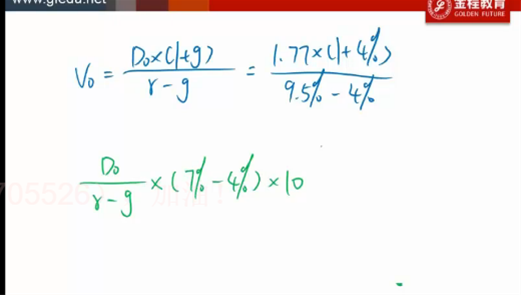 www.gfedu.net
金程教育
GOLDEN FUTURE
V₀ = D₀×(1+g) / r-g = 1.77×(1+4%) / 9.5%-4%
D₀ / r-g ×(7%-4%)×10